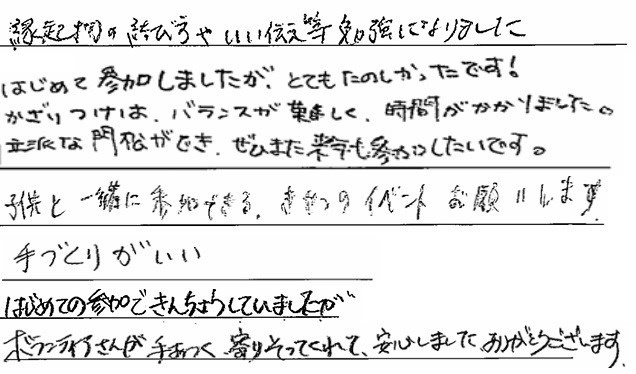 縁起物の結び方やいい伝え等勉強になりました
はじめて参加しましたが、とてもたのしかったです!
かざりつけは、バランスが難しく、時間がかかりました。
立派な門松ができ、ぜひまた来年も参加したいです。
子供と一緒に参加できる、きせつのイベントお願いします
手づくりがいい
はじめての参加できんちょうしていましたが
ボランティアさんが手あつく、寄りそってくれて、安心しました ありがとうございます。